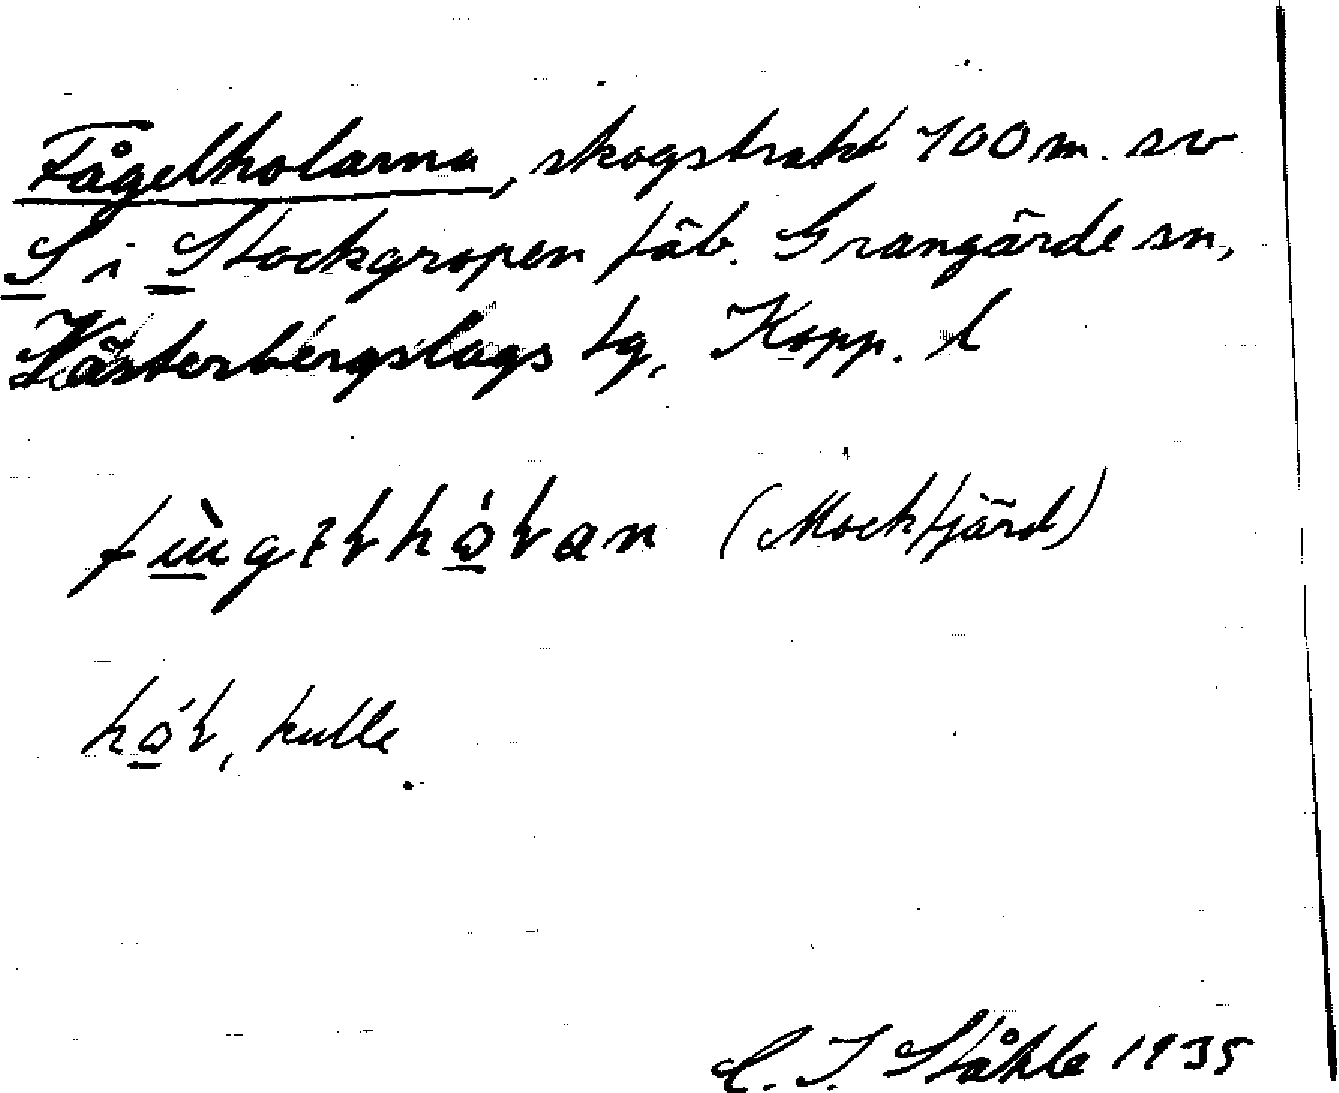 Fågelholarna, skogstrakt 700 m. sv
S i Stockgropen fäb. Grangärde sn,
Västerbergslags tg, Kopp. l
(Mockfjärd)
kulle
C. I. Ståhle 1935